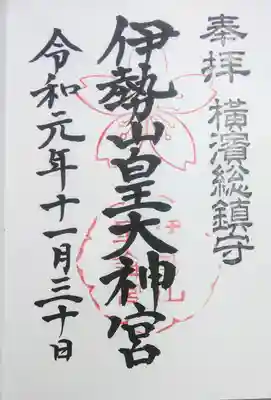 奉拝 横濱総鎮守
伊勢山皇大神宮
令和元年十一月三十日